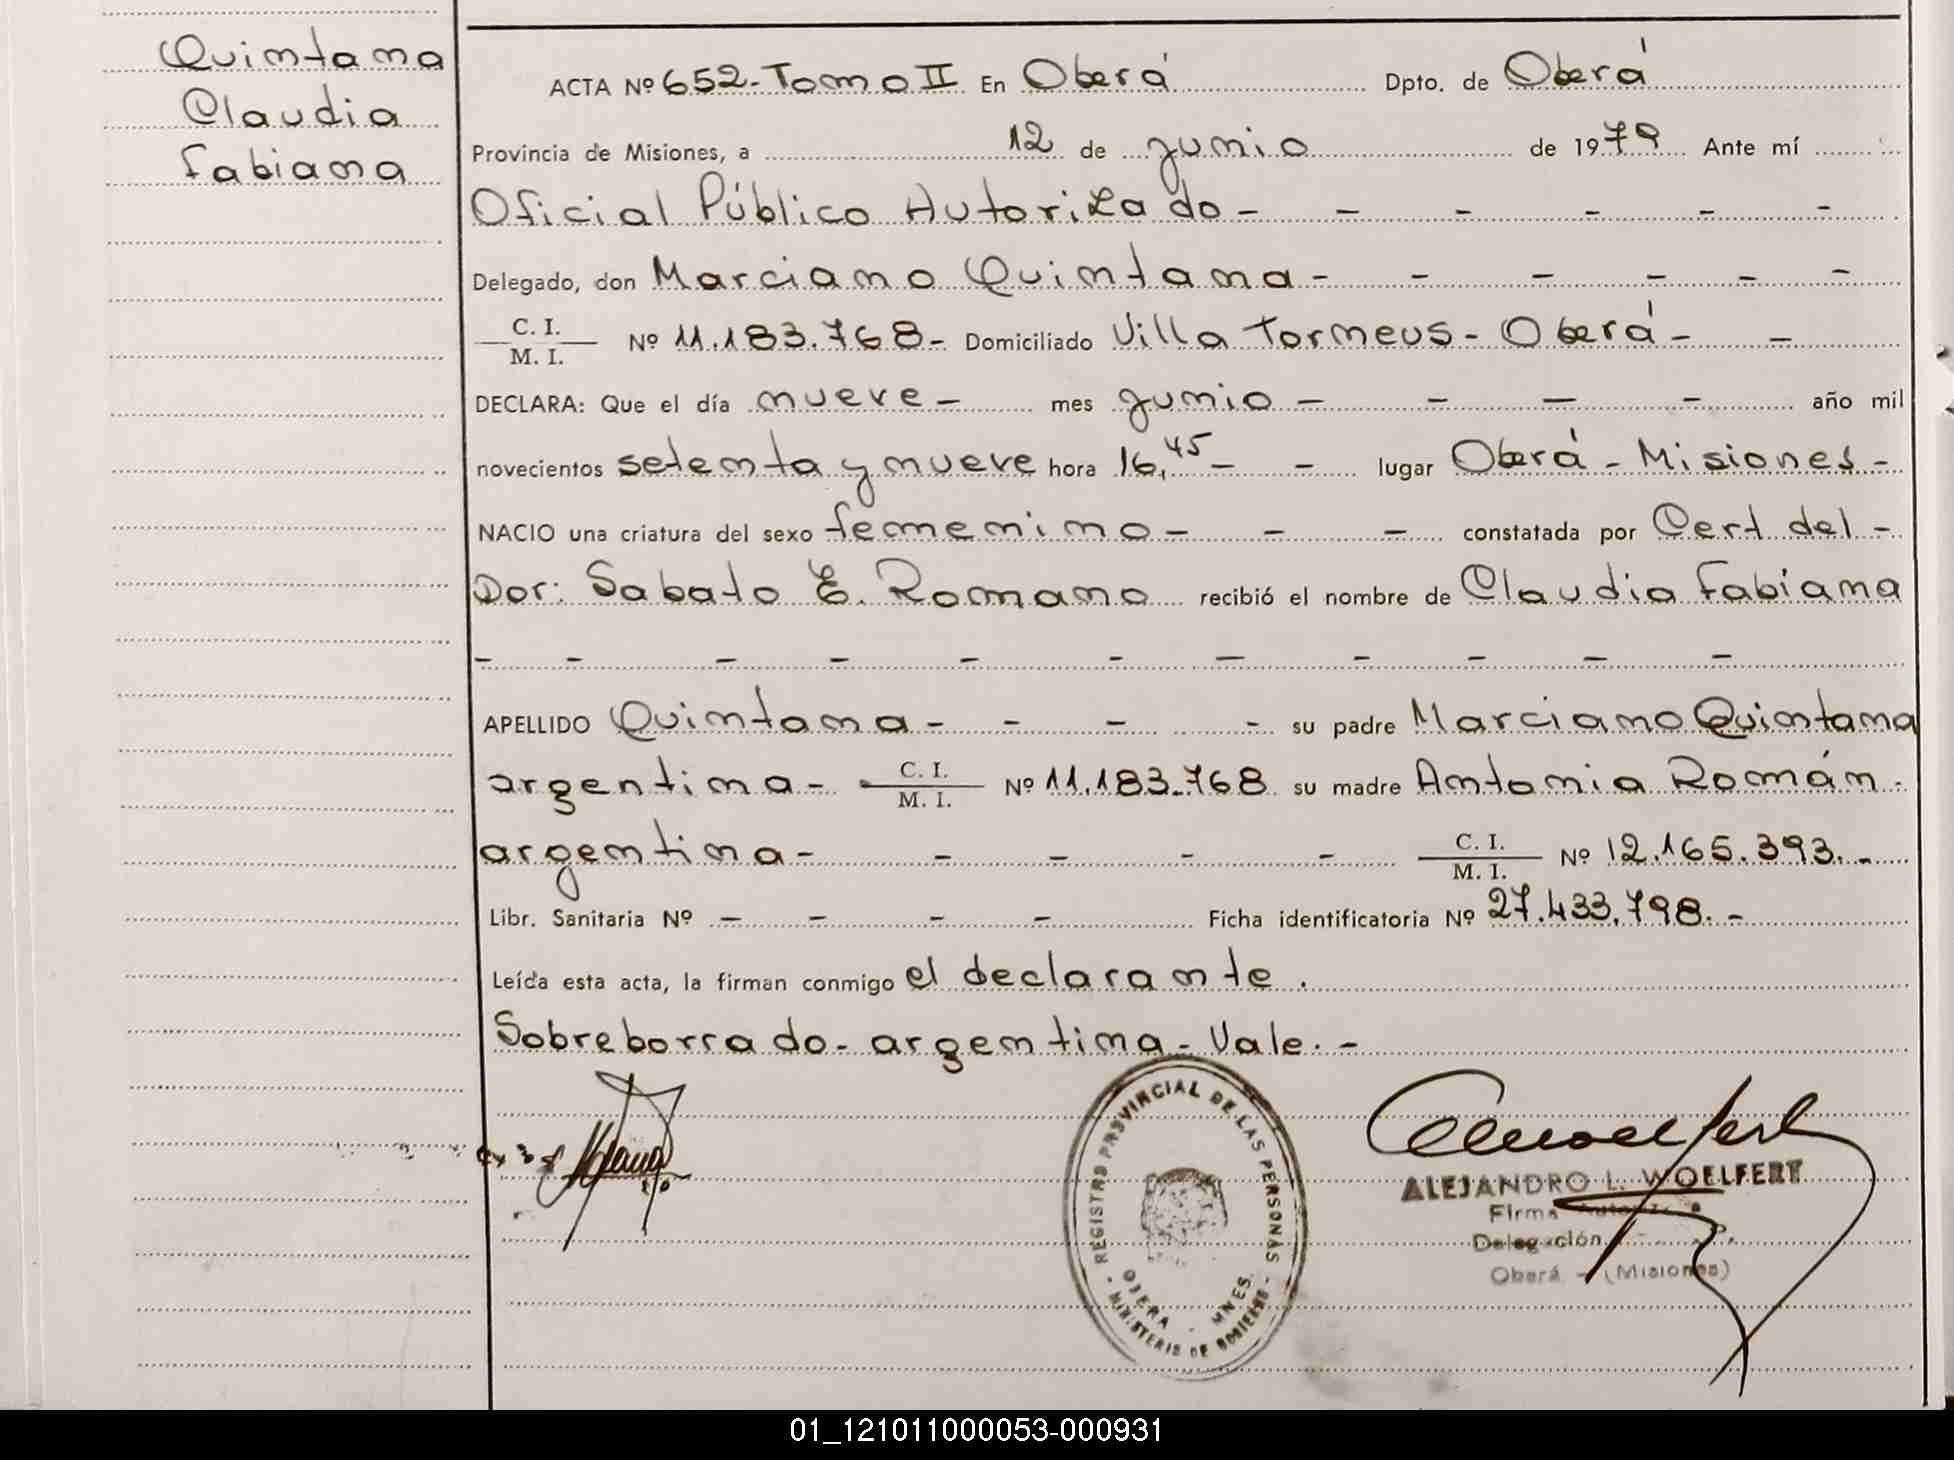 Quintana
Claudia
Fabiana
ACTA Nº 652-Tomo II En Oberá Dpto. de Oberá
Provincia de Misiones, a 12 de junio de 1979 Ante mí
Oficial Público Autorizado - - - - - -
Delegado, don Marciano Quintana - - - - - -
C. I.
M. I. Nº 11.183.768- Domiciliado Villa Torneus - Oberá - -
DECLARA: Que el día nueve - mes junio - - - - año mil
novecientos setenta y nueve hora 16,45 - - lugar Oberá - Misiones -
NACIO una criatura del sexo femenino - - - constatada por Cert del -
Dor: Sabato E. Romano recibió el nombre de Claudia Fabiana
- - - - - - - - - - -
APELLIDO Quintana - - - - su padre Marciano Quintana
argentina - C. I.
M. I. Nº 11.183.768 su madre Antonia Román -
argentina - - - - - C. I.
M. I. Nº 12.165.393. -
Libr. Sanitaria Nº - - - - Ficha identificatoria Nº 27.433.798. -
Leída esta acta, la firman conmigo el declarante .
Sobreborrado - argentina - Vale. -
REGISTRO PROVINCIAL DE LAS PERSONAS
OBERA - MNES.
- MINISTERIO DE GOBIERNO -
ALEJANDRO L. WOELFERT
Firma
Delegación
Oberá - (Misiones)
01_121011000053-000931